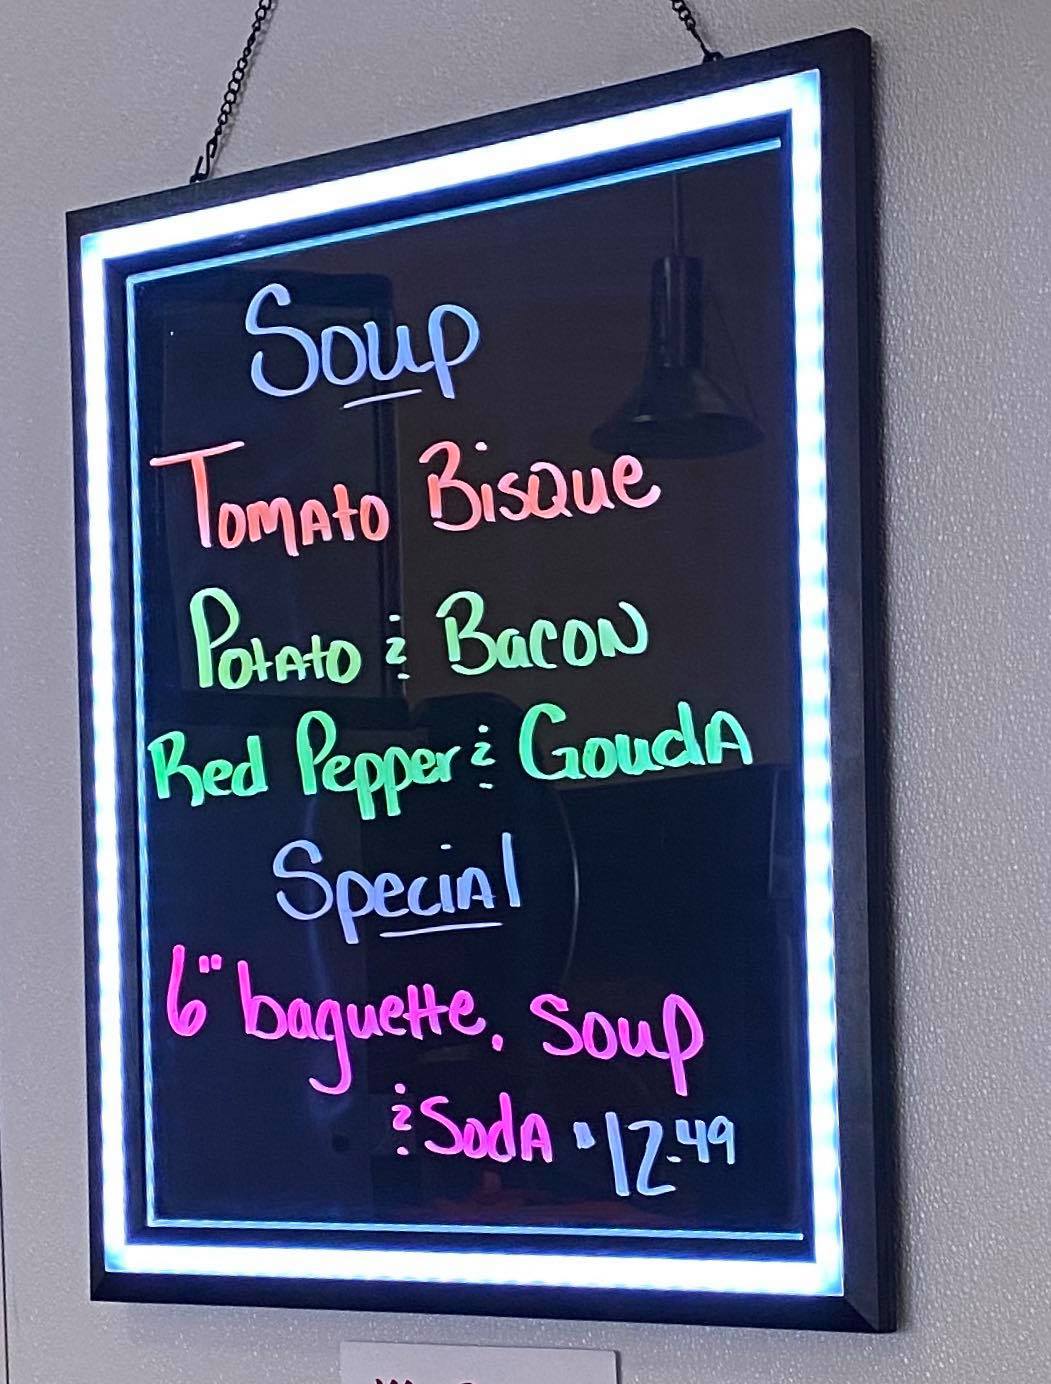 Soup
Tomato Bisque
Potato & Bacon
Red Pepper & Gouda
Special
6" baguette, Soup
& Soda $12.49